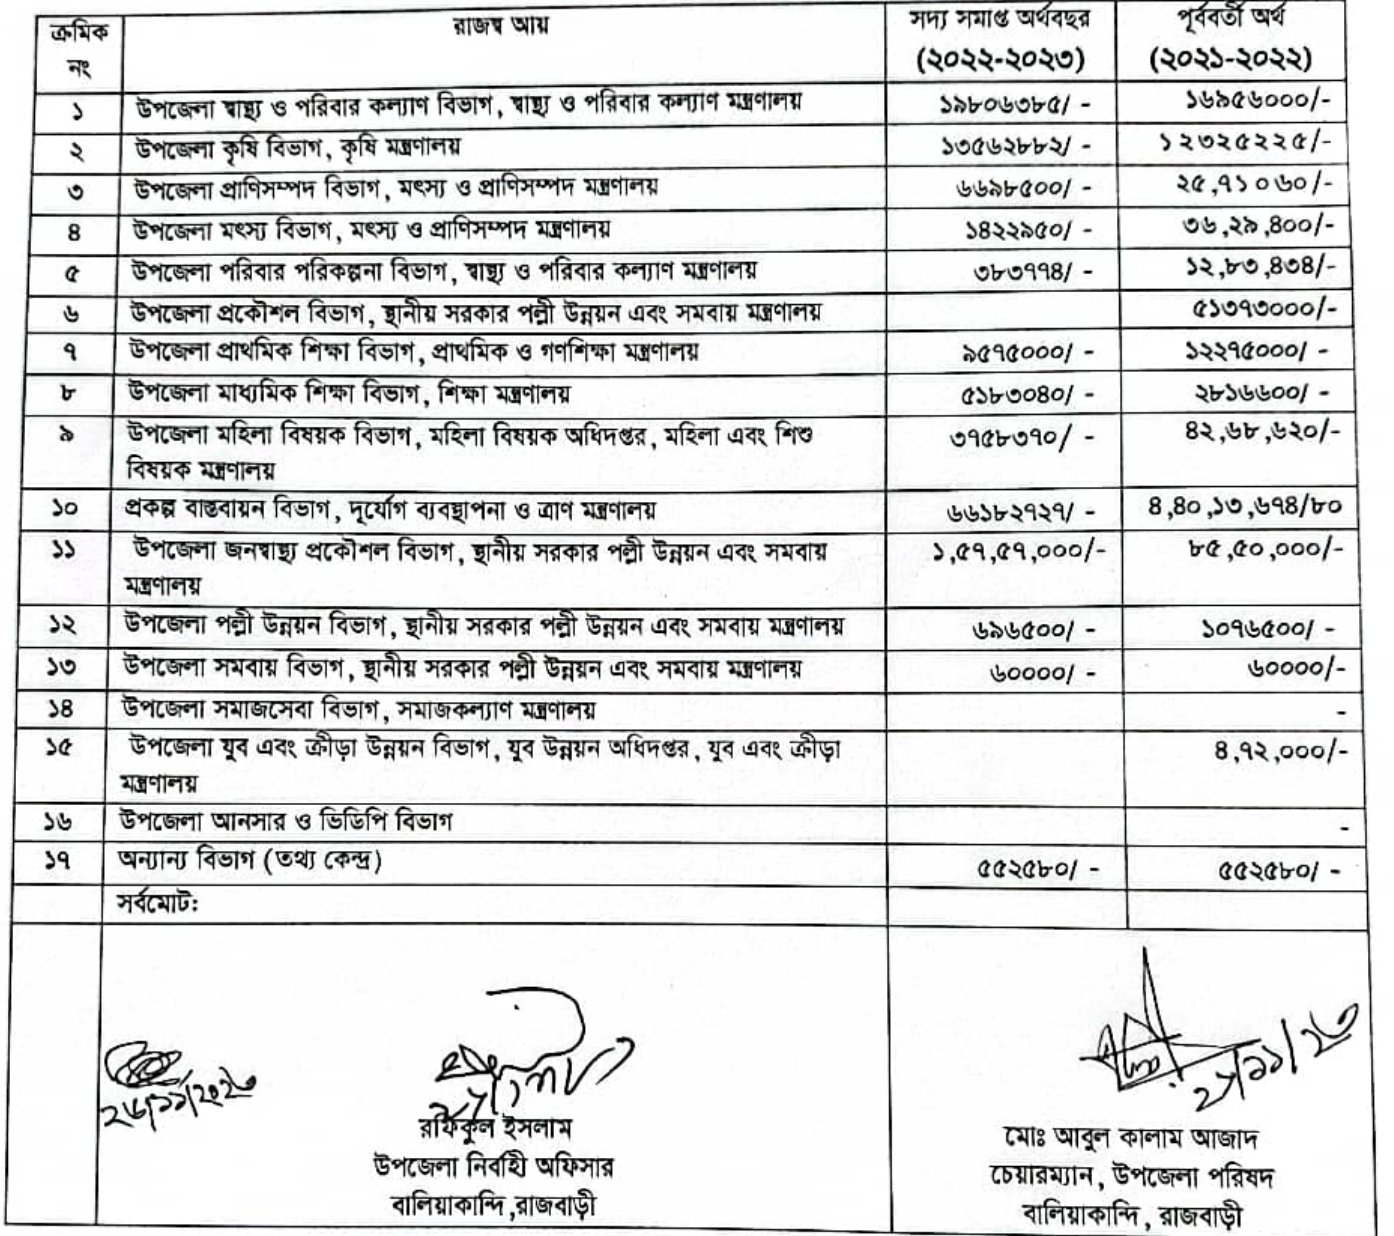 ক্রমিক নং	রাজস্ব আয়	সদ্য সমাপ্ত অর্থবছর (২০২২-২০২৩)	পূর্ববর্তী অর্থ (২০২১-২০২২)
১	উপজেলা স্বাস্থ্য ও পরিবার কল্যাণ বিভাগ, স্বাস্থ্য ও পরিবার কল্যাণ মন্ত্রণালয়	১৯৮০৬৩৮৫/ -	১৬৯৫৬০০০/-
২	উপজেলা কৃষি বিভাগ, কৃষি মন্ত্রণালয়	১৩৫৬২৮৮২/ -	১২৩২৫২২৫/-
৩	উপজেলা প্রাণিসম্পদ বিভাগ, মৎস্য ও প্রাণিসম্পদ মন্ত্রণালয়	৬৬৯৮৫০০/ -	২৫,৭১০৬০/-
৪	উপজেলা মৎস্য বিভাগ, মৎস্য ও প্রাণিসম্পদ মন্ত্রণালয়	১৪২২৯৫০/ -	৩৬,২৯,৪০০/-
৫	উপজেলা পরিবার পরিকল্পনা বিভাগ, স্বাস্থ্য ও পরিবার কল্যাণ মন্ত্রণালয়	৩৮৩৭৭৪/ -	১২,৮৩,৪৩৪/-
৬	উপজেলা প্রকৌশল বিভাগ, স্থানীয় সরকার পল্লী উন্নয়ন এবং সমবায় মন্ত্রণালয়		৫১৩৭৩০০০/-
৭	উপজেলা প্রাথমিক শিক্ষা বিভাগ, প্রাথমিক ও গণশিক্ষা মন্ত্রণালয়	৯৫৭৫০০০/ -	১২২৭৫০০০/ -
৮	উপজেলা মাধ্যমিক শিক্ষা বিভাগ, শিক্ষা মন্ত্রণালয়	৫১৮৩০৪০/ -	২৮১৬৬০০/ -
৯	উপজেলা মহিলা বিষয়ক বিভাগ, মহিলা বিষয়ক অধিদপ্তর, মহিলা এবং শিশু	৩৭৫৮৩৭০/ -	৪২,৬৮,৬২০/-
বিষয়ক মন্ত্রণালয়
১০	প্রকল্প বাস্তবায়ন বিভাগ, দূর্যোগ ব্যবস্থাপনা ও ত্রাণ মন্ত্রণালয়	৬৬১৮২৭২৭/ -	৪,৪০,১৩,৬৭৪/৮০
১১	উপজেলা জনস্বাস্থ্য প্রকৌশল বিভাগ, স্থানীয় সরকার পল্লী উন্নয়ন এবং সমবায়	১,৫৭,৫৭,০০০/-	৮৫,৫০,০০০/-
মন্ত্রণালয়
১২	উপজেলা পল্লী উন্নয়ন বিভাগ, স্থানীয় সরকার পল্লী উন্নয়ন এবং সমবায় মন্ত্রণালয়	৬৯৬৫০০/ -	১০৭৬৫০০/ -
১৩	উপজেলা সমবায় বিভাগ, স্থানীয় সরকার পল্লী উন্নয়ন এবং সমবায় মন্ত্রণালয়	৬০০০০/ -	৬০০০০/-
১৪	উপজেলা সমাজসেবা বিভাগ, সমাজকল্যাণ মন্ত্রণালয়		-
১৫	উপজেলা যুব এবং ক্রীড়া উন্নয়ন বিভাগ, যুব উন্নয়ন অধিদপ্তর, যুব এবং ক্রীড়া		৪,৭২,০০০/-
মন্ত্রণালয়
১৬	উপজেলা আনসার ও ভিডিপি বিভাগ		-
১৭	অন্যান্য বিভাগ (তথ্য কেন্দ্র)	৫৫২৫৮০/ -	৫৫২৫৮০/ -
সর্বমোট:
২৬/১১/২০২৩
রফিকুল ইসলাম
উপজেলা নির্বাহী অফিসার
বালিয়াকান্দি,রাজবাড়ী
২৮/১১/২৩
মোঃ আবুল কালাম আজাদ
চেয়ারম্যান, উপজেলা পরিষদ
বালিয়াকান্দি, রাজবাড়ী